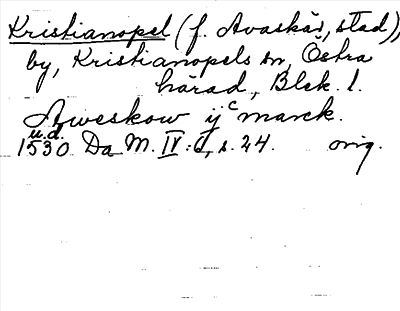 Kristianopel (f. Avaskär, stad),
by, Kristianopels sn, Östra
härad, Blek. l.
Aweskow ij c marck.
u.d.
1530 Da M. IV: s. 24. orig.